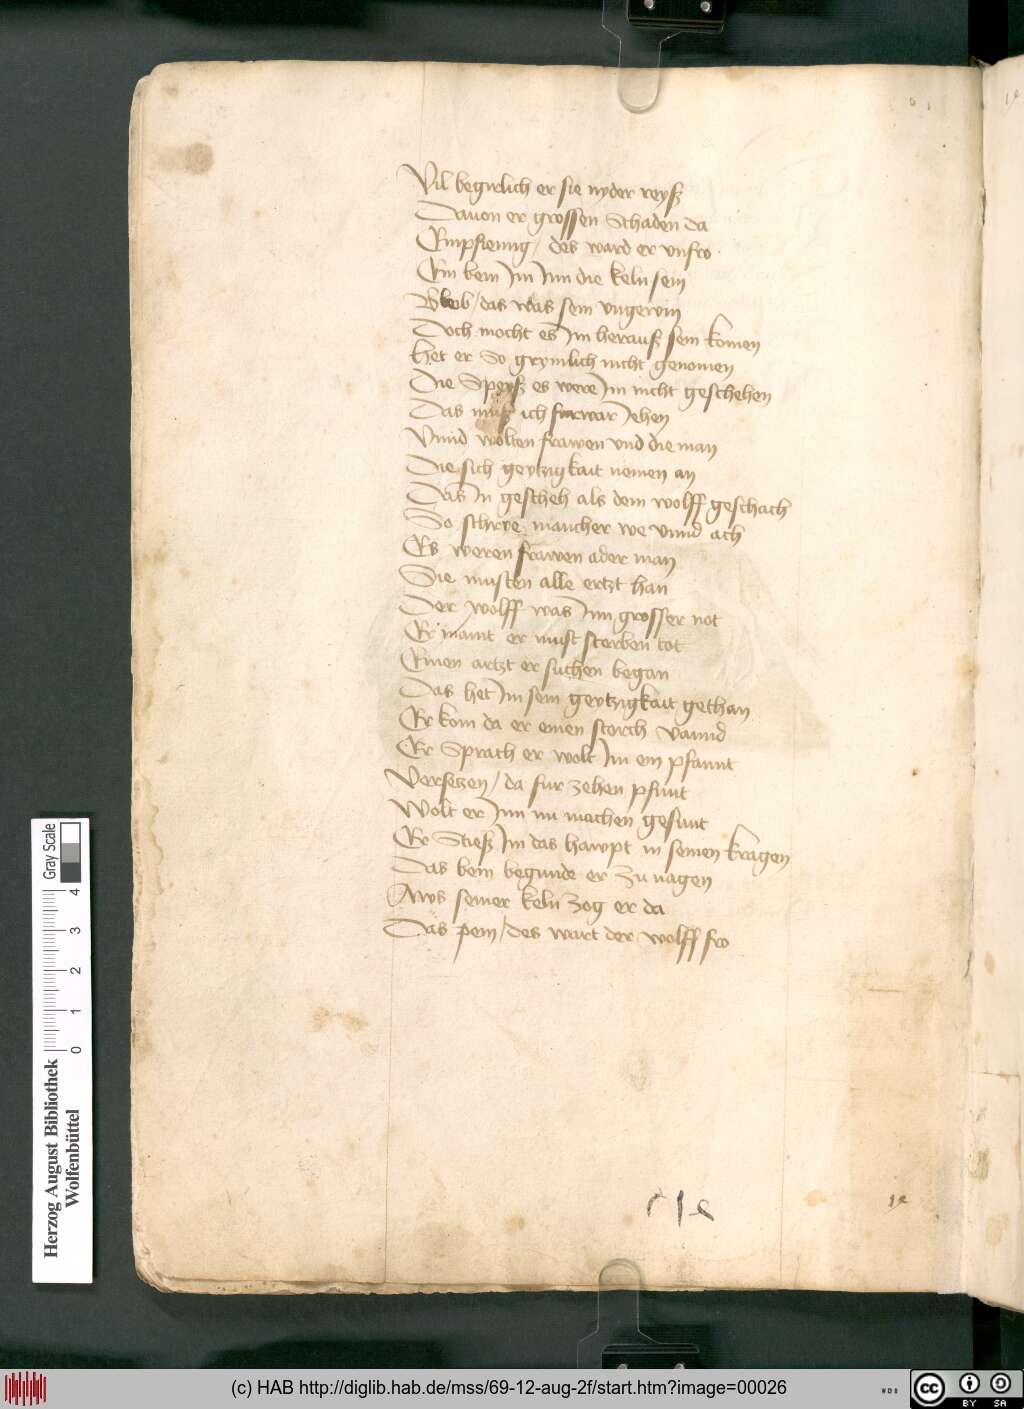 Vil begirlich er sie nyder reyß
Dauon er grossen Schaden da
Empfieng / des ward er vnfro
Ein bein Jm Jnn die keln sein
Bleib / das was sein vngewin
Doch mocht es Jm herauß sein komen
Het er So grymlich nicht genomen
Die Speyß es were Jm nicht geschehen
Das muß ich furwar Jehen
Vnnd wolten frawen vnd die man
Die sich geytzigkait nemen an
Das Jn gescheh als dem wolff geschach
So schrye mancher we vnnd ach
Es weren frawen ader man
Sie musten alle ertzt han
Der wolff was Jnn grosser not
Er maint er must sterben tot
Einen artzt er suchen began
Das het Jm sein geytzigkait gethan
Er kom da er einen storch vannd
Er Sprach er wolt Jm ein pfannt
Versetzen / da fur zehen pfunt
Wolt er Jnn nu machen gesunt
Er Stieß Jm das hawpt in seinen kragen
Das bein begunde er Zu nagen
Aws seiner keln Zog er da
Das pein / des wart der wolff fro
Gray Scale
0 1 2 3 4
Herzog August Bibliothek
Wolfenbüttel
(c) HAB http://diglib.hab.de/mss/69-12-aug-2f/start.htm?image=00026
WDB
cc
BY SA